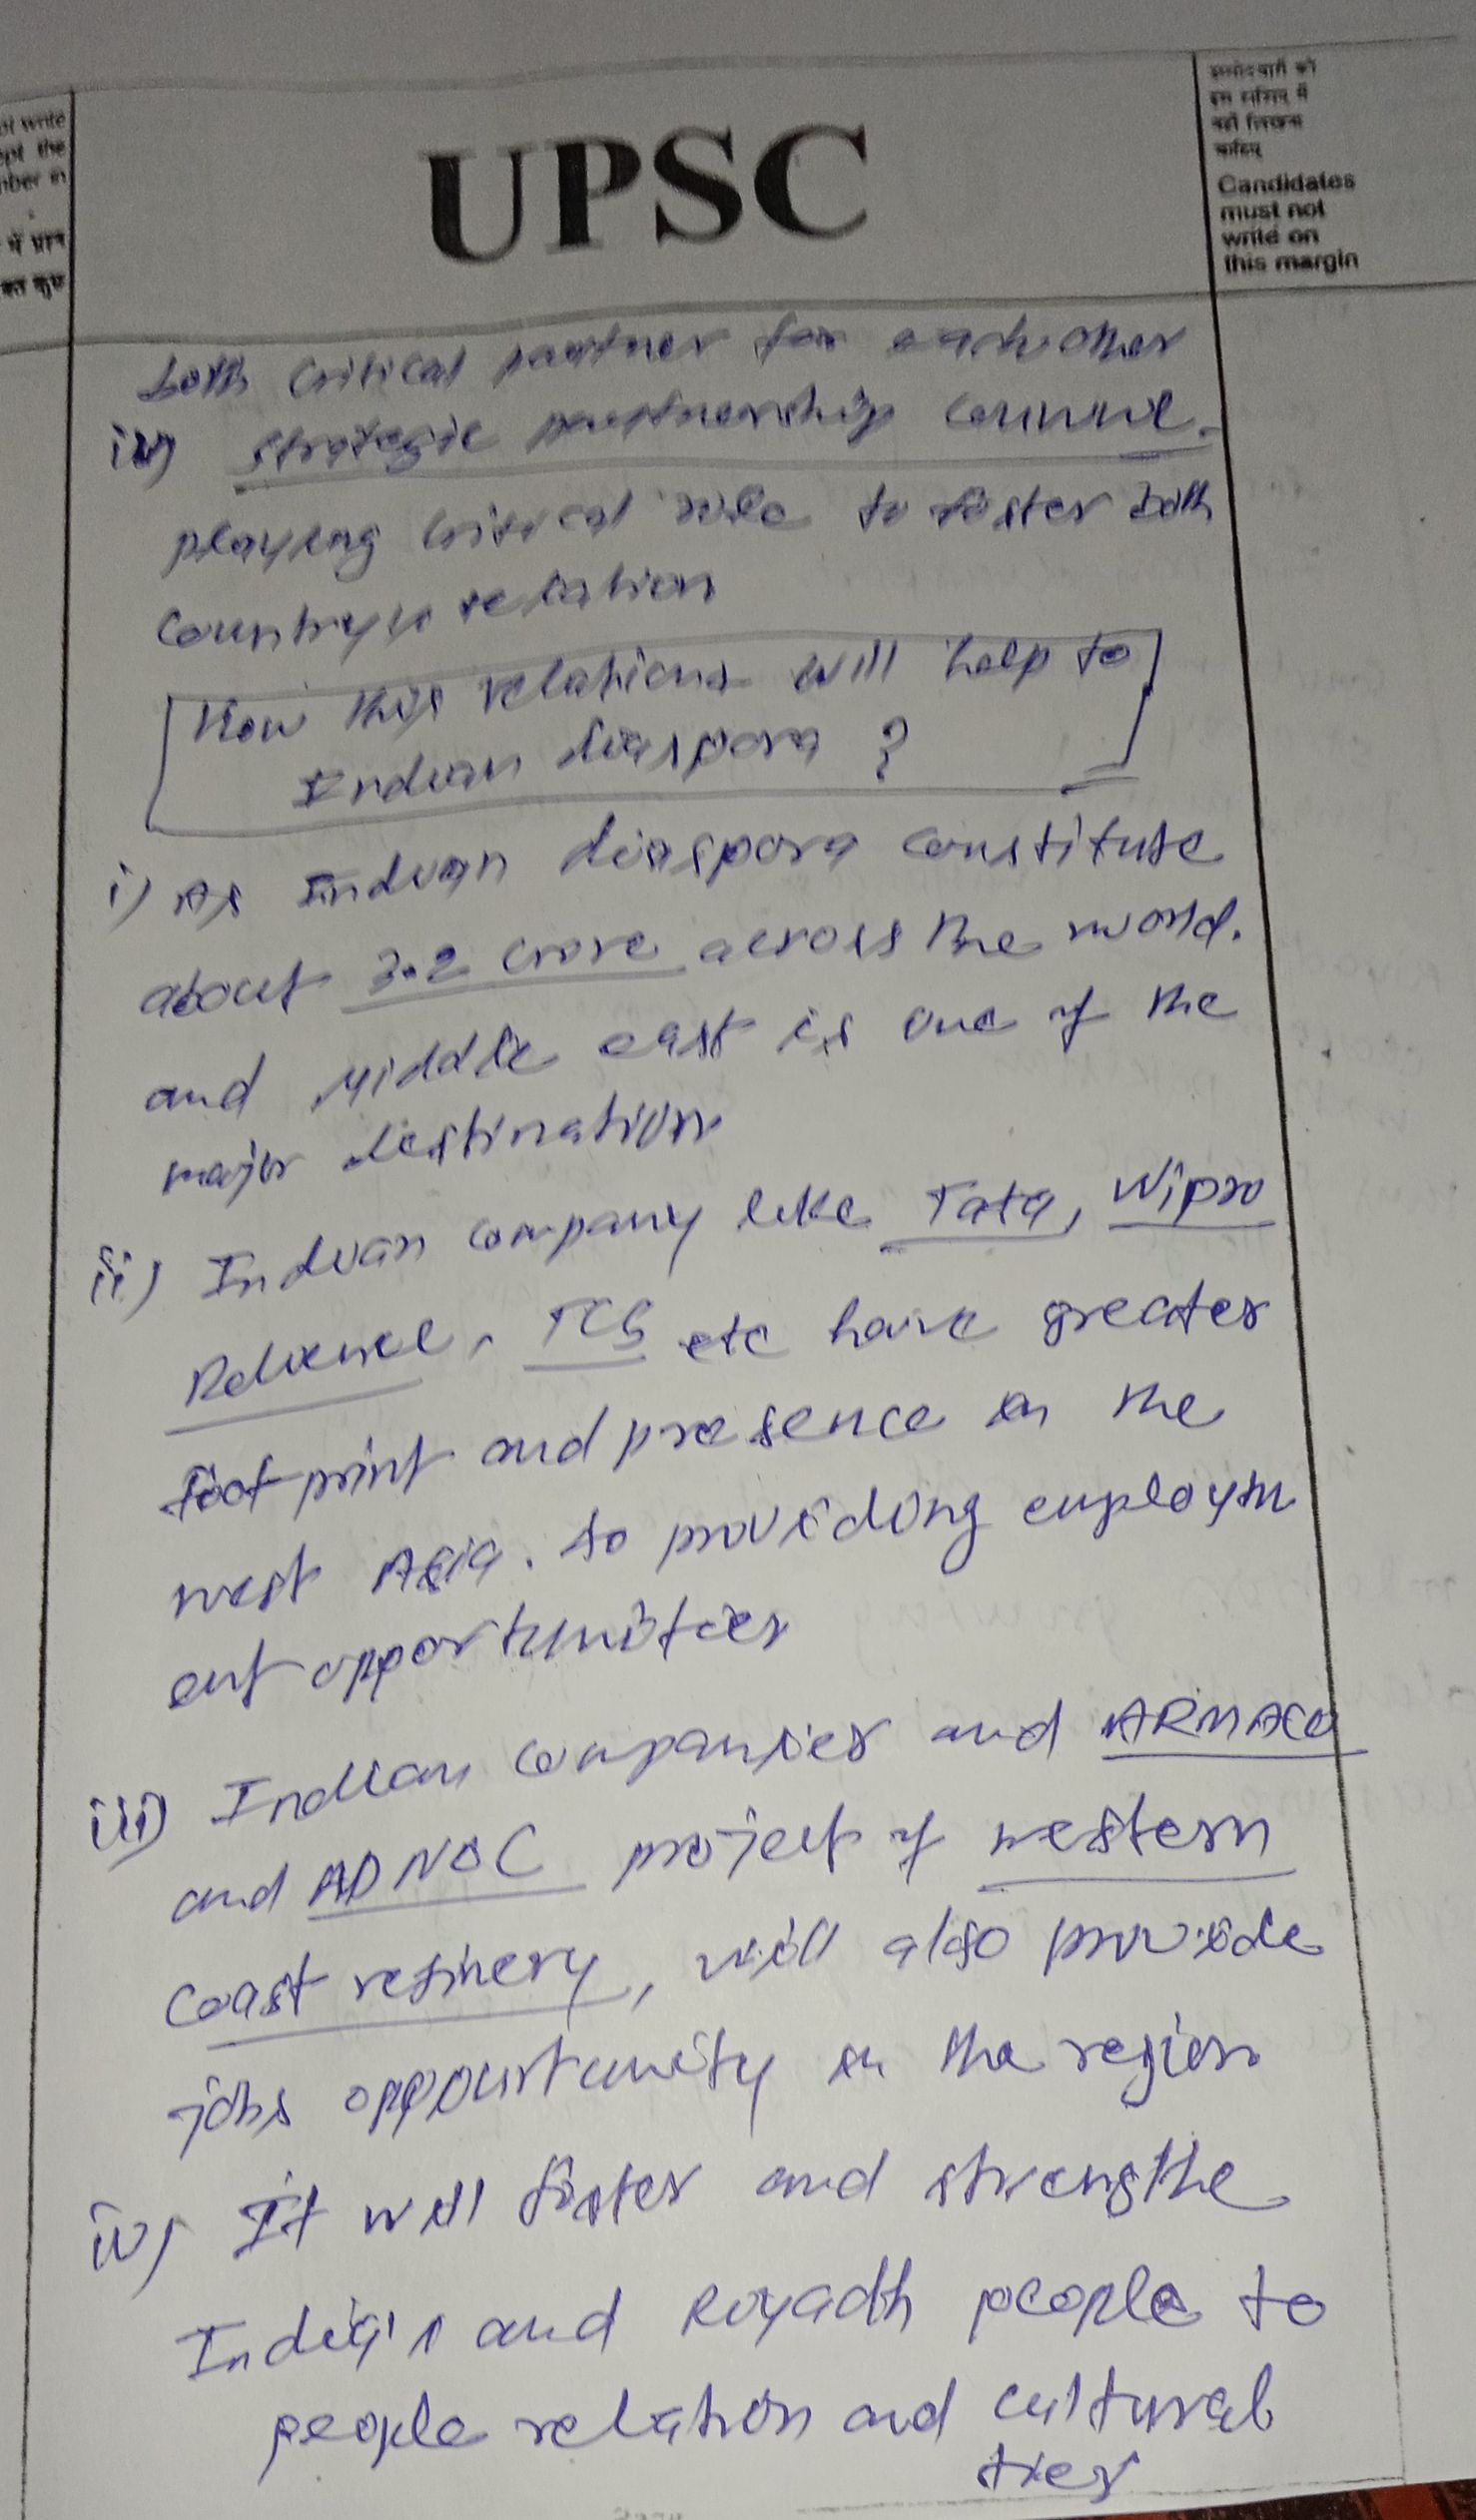 UPSC
उम्मीदवारों को
इस हाशिए में
नहीं लिखना
चाहिए
Candidates
must not
write on
this margin
ot write
ept the
nber in
में प्रश्न
both critical partner for each other
iv) strategic partnership
playing critical role to foster both
country's relation
How this relations will help to
Indian diaspora ?
i) As Indian diaspora constitute
about 3.2 crore across the world.
and Middle east is one of the
major destination
ii) Indian company like Tata, Wipro
Reliance, TCS etc have greater
foot print and presence in the
west Asia. so providing employm
ent opportunities
iii) Indian companies and ARMACO
and ADNOC project of western
coast refinery, will also provide
jobs opportunity in the region
iv) It will foster and strengthe
India's and Royadh people to
people relation and cultural
ties